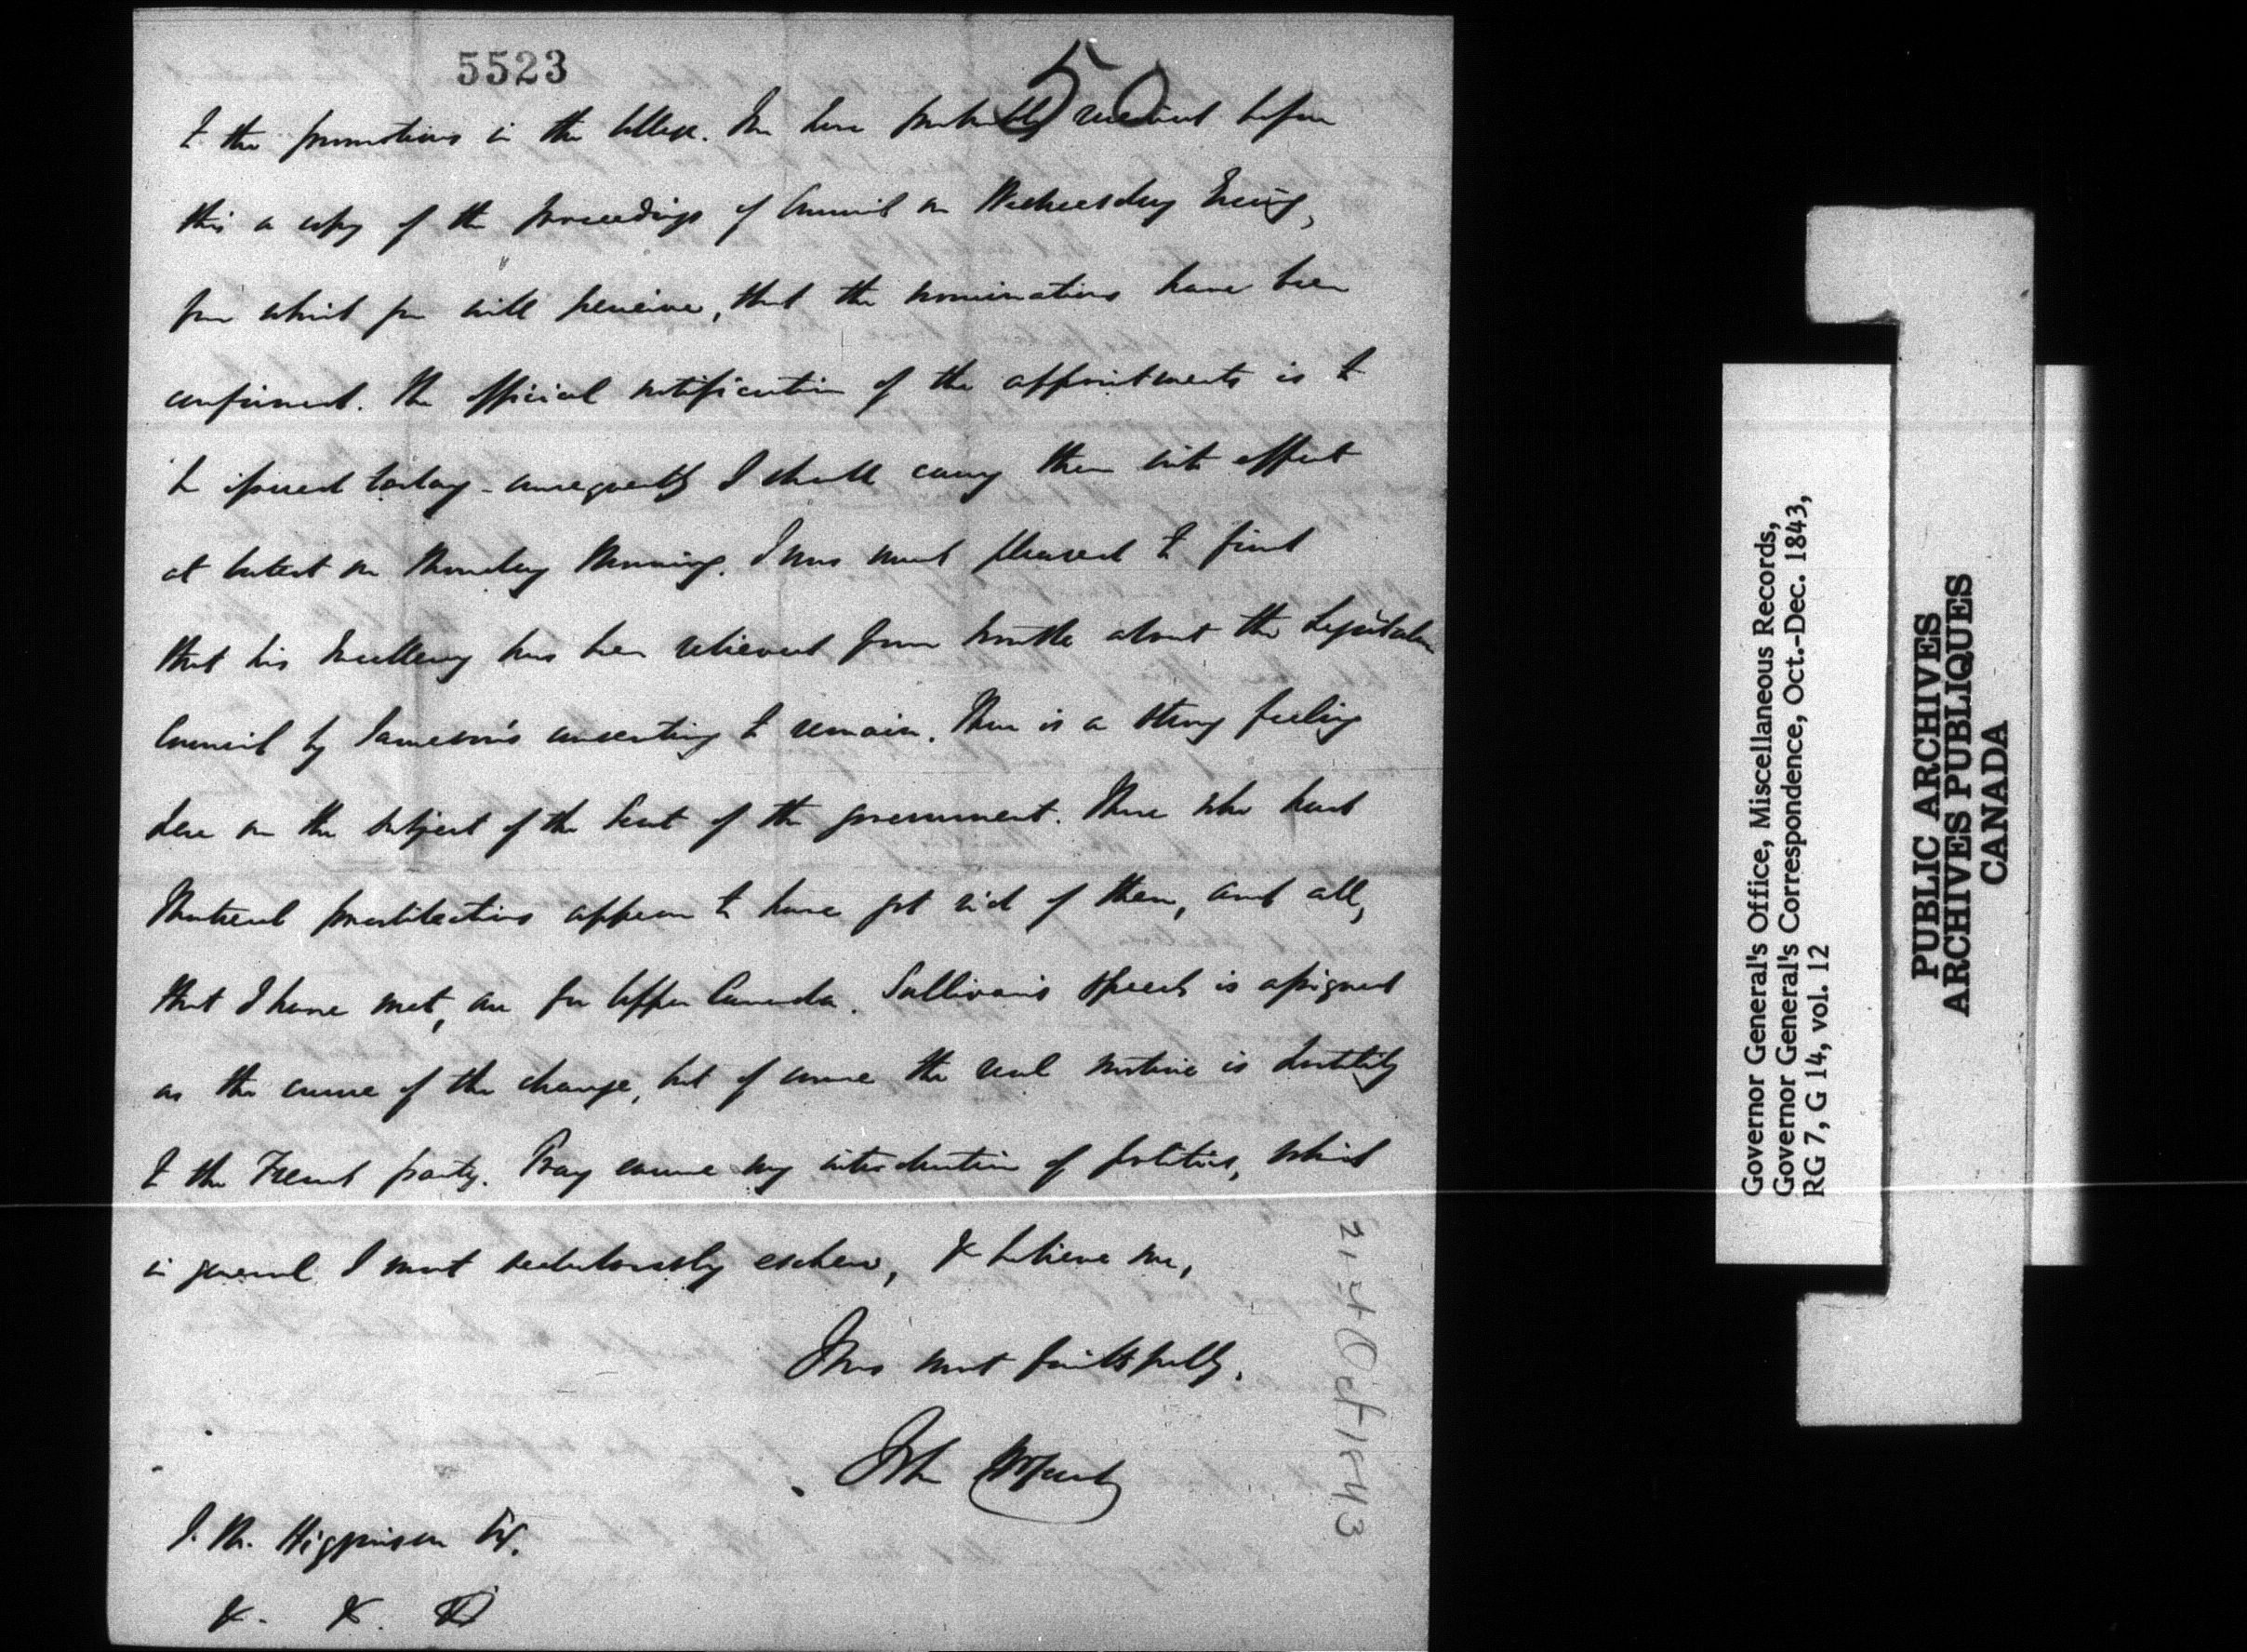 5523
50
to the promotions in the College. You have probably received before
this a copy of the proceedings of Council on Wednesday Evening,
from which you will perceive, that the nominations have been
confirmed. The official notification of the appointments is to
be issued today - consequently I shall carry them into effect
at latest on Monday Morning. I was most pleased to find
that his Excellency has been relieved from trouble about the Legislative
Council by Jameson's consenting to remain. There is a strong feeling
here on the subject of the Seat of the government. Those who had
Montreal predilections appear to have got rid of them, and all,
that I have met, are for Upper Canada. Sullivan's speech is assigned
as the cause of the change, but of course the real motive is hostility
to the French party. Pray excuse my introduction of politics, which
in general I most sedulously eschew, & believe me,
Yours most faithfully,
John McCaul
J. M. Higginson Esq.
&. &. &
21st Oct 1843
Governor General's Office, Miscellaneous Records,
Governor General's Correspondence, Oct.-Dec. 1843,
RG 7, G 14, vol. 12
PUBLIC ARCHIVES
ARCHIVES PUBLIQUES
CANADA